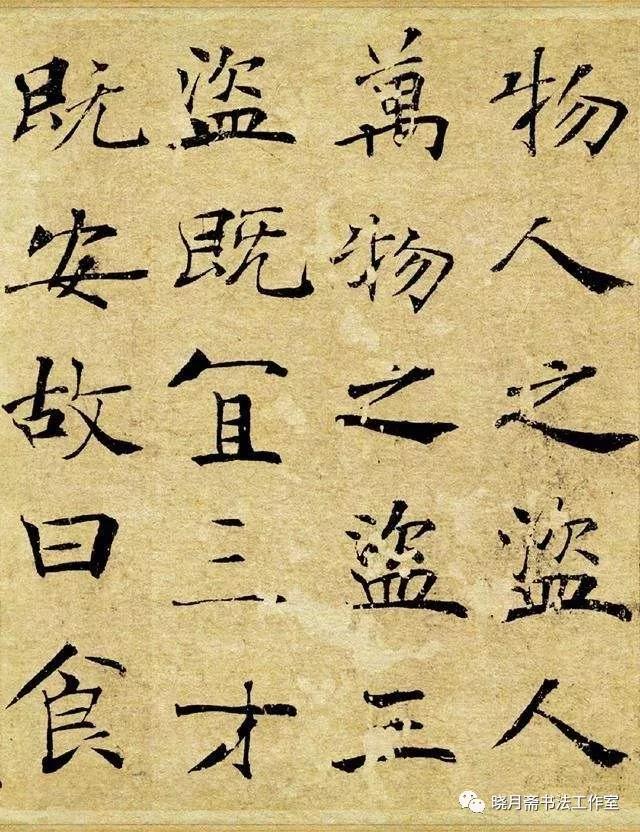 物人之盜人
萬物之盜三
盜既宜三才
既安故曰食
晓月斋书法工作室